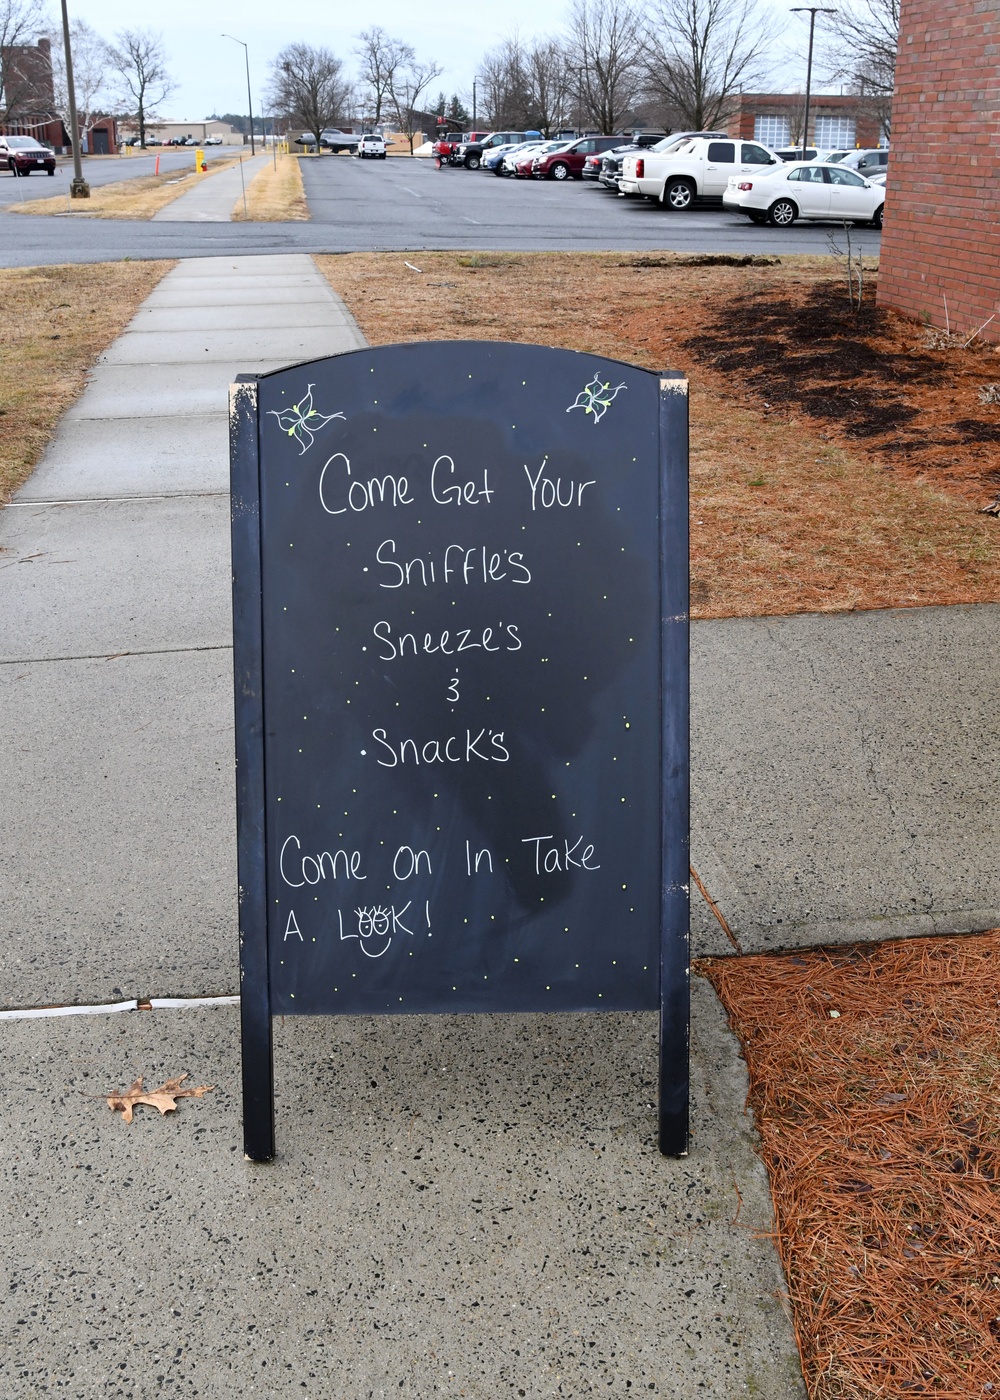 Come Get Your
· Sniffle's
· Sneeze's
&
· Snack's
Come on In Take
A LOOK!